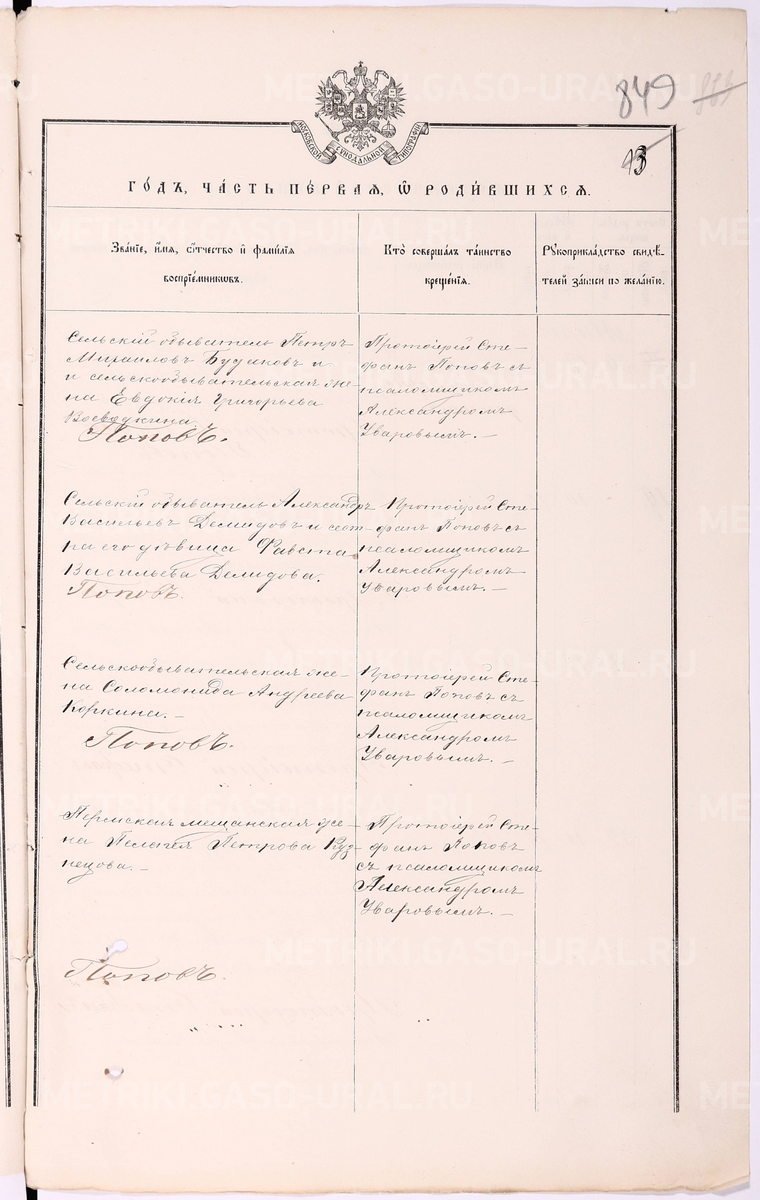 849
13
МОСКОВСКОЙ СѴНОДАЛЬНОЙ ТИПОГРАФІИ
ГО́ДЪ, ЧА́СТЬ ПЕ́РВАЯ, Ѡ҆ РОДИ́ВШИХСЯ.
Зва́нїе, и҆́мя, ѻ҆́тчество и҆ фами́лїя
воспрїе́мникѡвъ.
Кто̀ соверша́лъ та́инство
креще́нїя.
Рꙋкоприкла́дство свидѣ́-
телей за́писи по жела́нїю.
Сельскій обыватель Петръ
Михаиловъ Будаковъ и
и сельскообывательская же-
на Евдокія Григорьева
Воеводкина
Поповъ.
Протоіерей Сте-
фанъ Поповъ съ
псаломщикомъ
Александромъ
Уваровымъ. —
Сельскій обыватель Александръ
Васильевъ Демидовъ и сест-
ра его дѣвица Фавста
Васильева Демидова.
Поповъ.
Протоіерей Сте-
фанъ Поповъ съ
псаломщикомъ
Александромъ
Уваровымъ. —
Сельскообывательская же-
на Соломонида Андреева
Коркина. —
Поповъ.
Протоіерей Сте-
фанъ Поповъ съ
псаломщикомъ
Александромъ
Уваровымъ. —
Пермская мещанская же-
на Пелагея Петрова Куз-
нецова. —
Поповъ.
Протоіерей Сте-
фанъ Поповъ
съ псаломщикомъ
Александромъ
Уваровымъ. —
METRIKI.GASO-URAL.RU